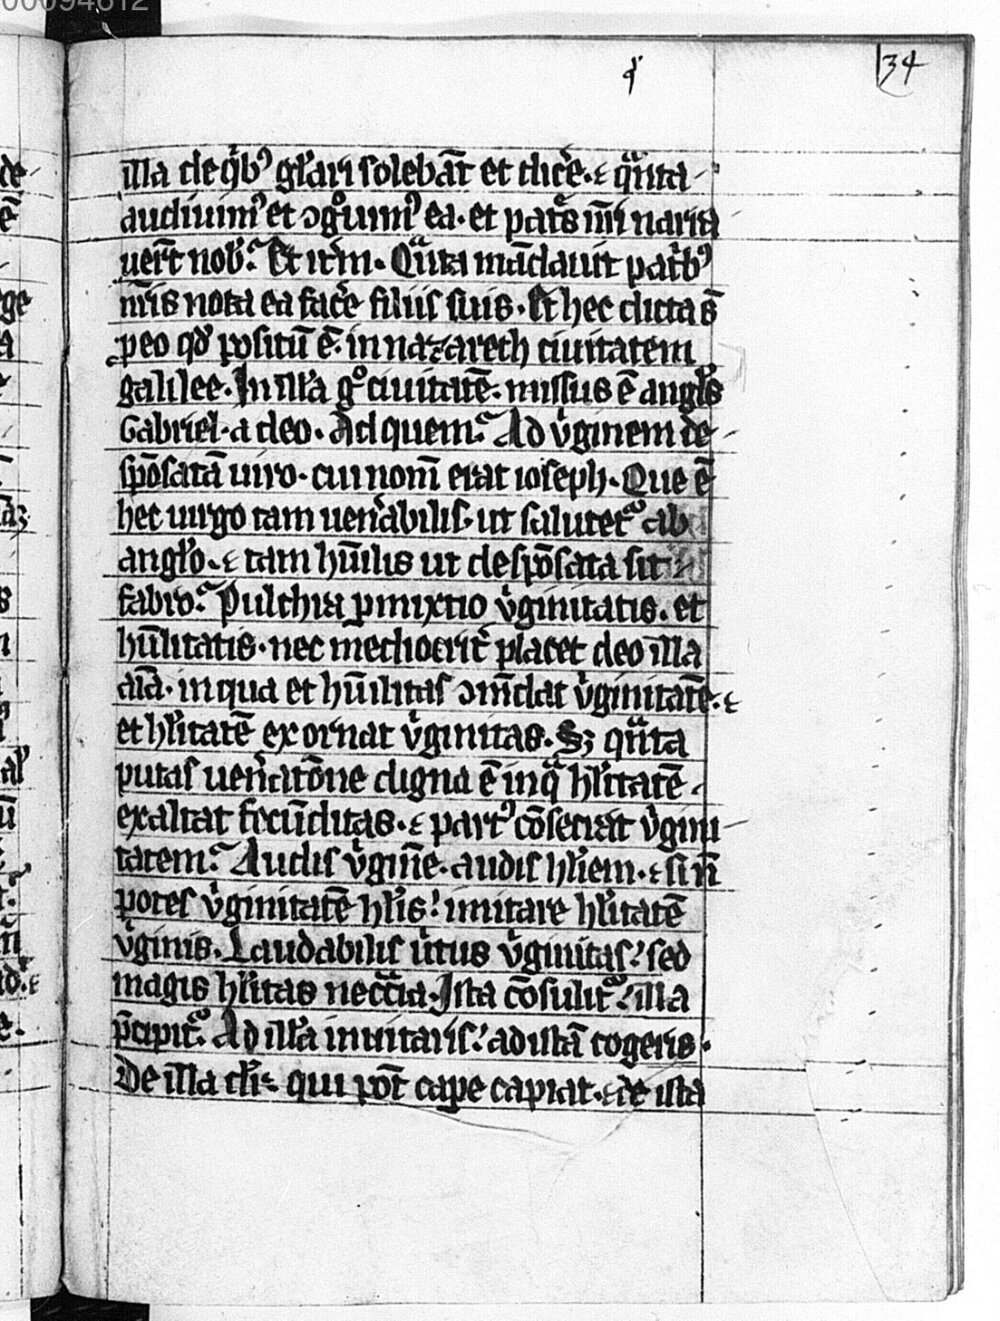 00094812
34
illa de qͥbꝰ gl̃ari solebãt et dic̃e. ⁊ qͣnta
audiuimꝰ et ꝯgͦuimꝰ ea. et patᷤ nr̃i narra
uer̃t nob̾. Et it̾m. Qͣnta mãdauit patͥbꝰ
nr̃is nota ea fac̾e filiis suis. Et hec dicta s̃
ꝓ eo qd̾ positũ ẽ. in nazareth ciuitatem
galilee. In ill̾a gͦ ciuitatẽ. missus ẽ angl̾s
Gabriel. a deo. Ad quem. Ad vͥginem de
spõsatã uiro. cui nom̃ erat ioseph. Que ẽ
hec uirgo tam uen̾abilis. ut salutet᷑ ab
angl̾o. ⁊ tam hũilis ut despõsata sit
fabro. Pulchra ꝑmixtio vͥginitatis. et
hũlitatis. nec mediocrit̾ placet deo illa
aĩa. in qua et hũilitas ꝯm̃dat vͥginitatẽ. ⁊
et hl̾itatẽ exornat vͥginitas. Sꝫ qͣnta
putas uen̾atõne digna ẽ in qͣ hl̾itatẽ
exaltat fecũditas. ⁊ partꝰ cõsecrat vͥgini
tatem. Audis vͥgin̄e. audis hl̾iem. ⁊ si ñ
potes vͥginitatẽ hl̾is. imitare hl̾itatẽ
vͥginis. Laudabilis uͥtus vͥginitas. sed
magis hl̾itas necc̃ia. Ista cõsulit᷑. illa
p̃cipit᷑. Ad ill̾a inuitaris. ad istã cogeris.
De illa dr̃. qui pot̃ cape capiat. ⁊ de ista